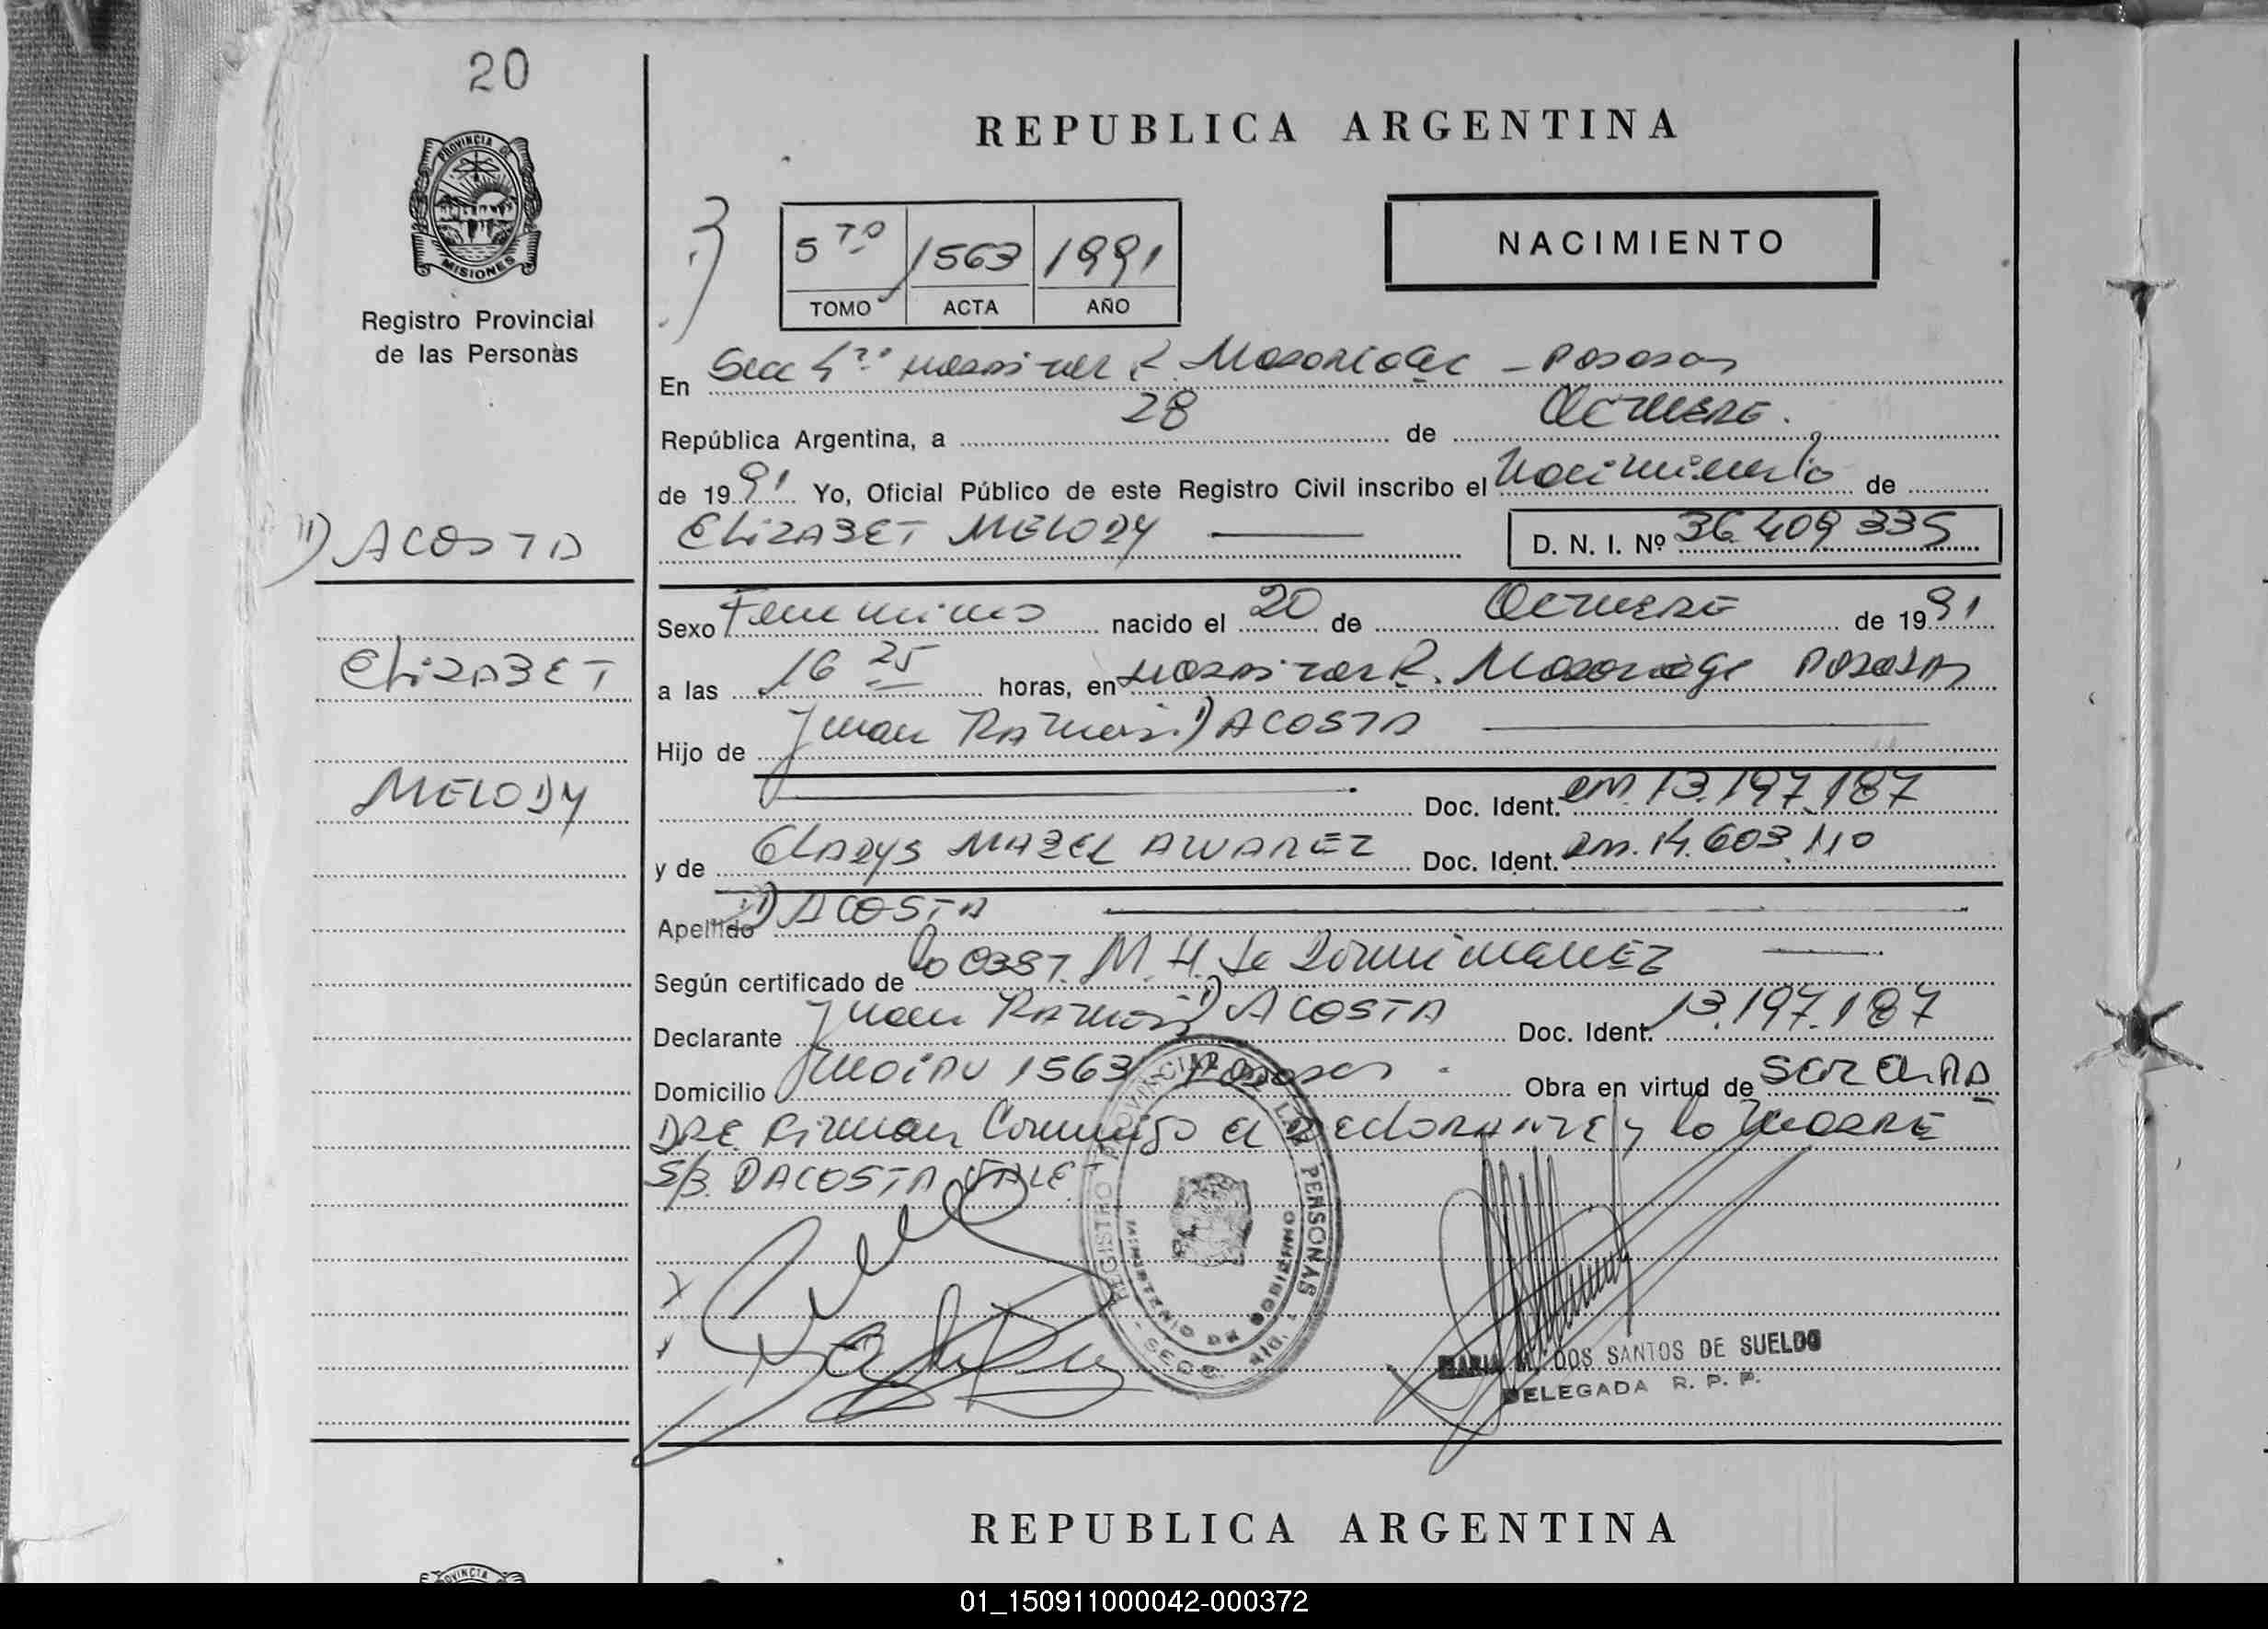 20
PROVINCIA DE
MISIONES
Registro Provincial
de las Personas
REPUBLICA ARGENTINA
5TO 1563 1991
TOMO ACTA AÑO
NACIMIENTO
En Secc 4ta Hospital R. Madariaga - Posadas
República Argentina, a 28 de Octubre.
de 1991 Yo, Oficial Público de este Registro Civil inscribo el Nacimiento de
ELIZABET MELODY
D. N. I. Nº 36.409.335
DACOSTA
ELIZABET
MELODY
Sexo Femenino nacido el 20 de Octubre de 1991
a las 16 25 horas, en Hospital R. Madariaga Posadas
Hijo de Juan Ramon DACOSTA
Doc. Ident. DNI. 13.197.187
y de GLADYS MABEL ALVAREZ Doc. Ident. DNI. 14.603.110
Apellido DACOSTA
Según certificado de M. H. de
Declarante Juan Ramon DACOSTA Doc. Ident. 13.197.187
Domicilio 1563 Posadas. Obra en virtud de SER EL PA
DRE. Firman Conmigo el DECLARANTE y la MADRE
S/B. DACOSTA VALE.
REGISTRO PROVINCIAL LAS PERSONAS
MINISTERIO DE GOBIERNO
MARIA M. DOS SANTOS DE SUELDO
DELEGADA R. P. P.
REPUBLICA ARGENTINA
PROVINCIA
01_150911000042-000372